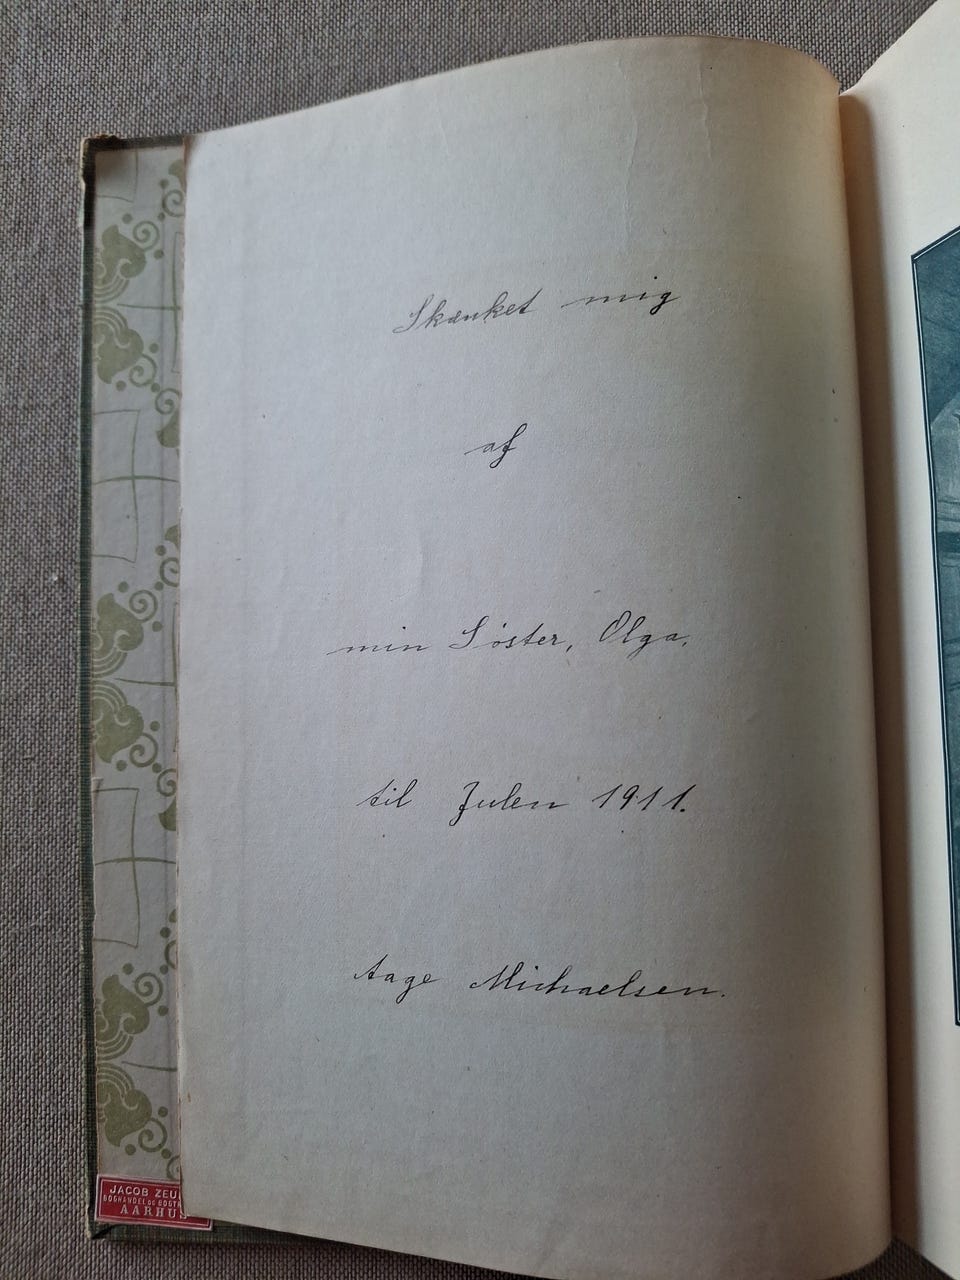 Skænket mig
af
min Søster, Olga.
til Julen 1911.
Aage Michaelsen.
JACOB
BOGHANDEL OG
AARHUS